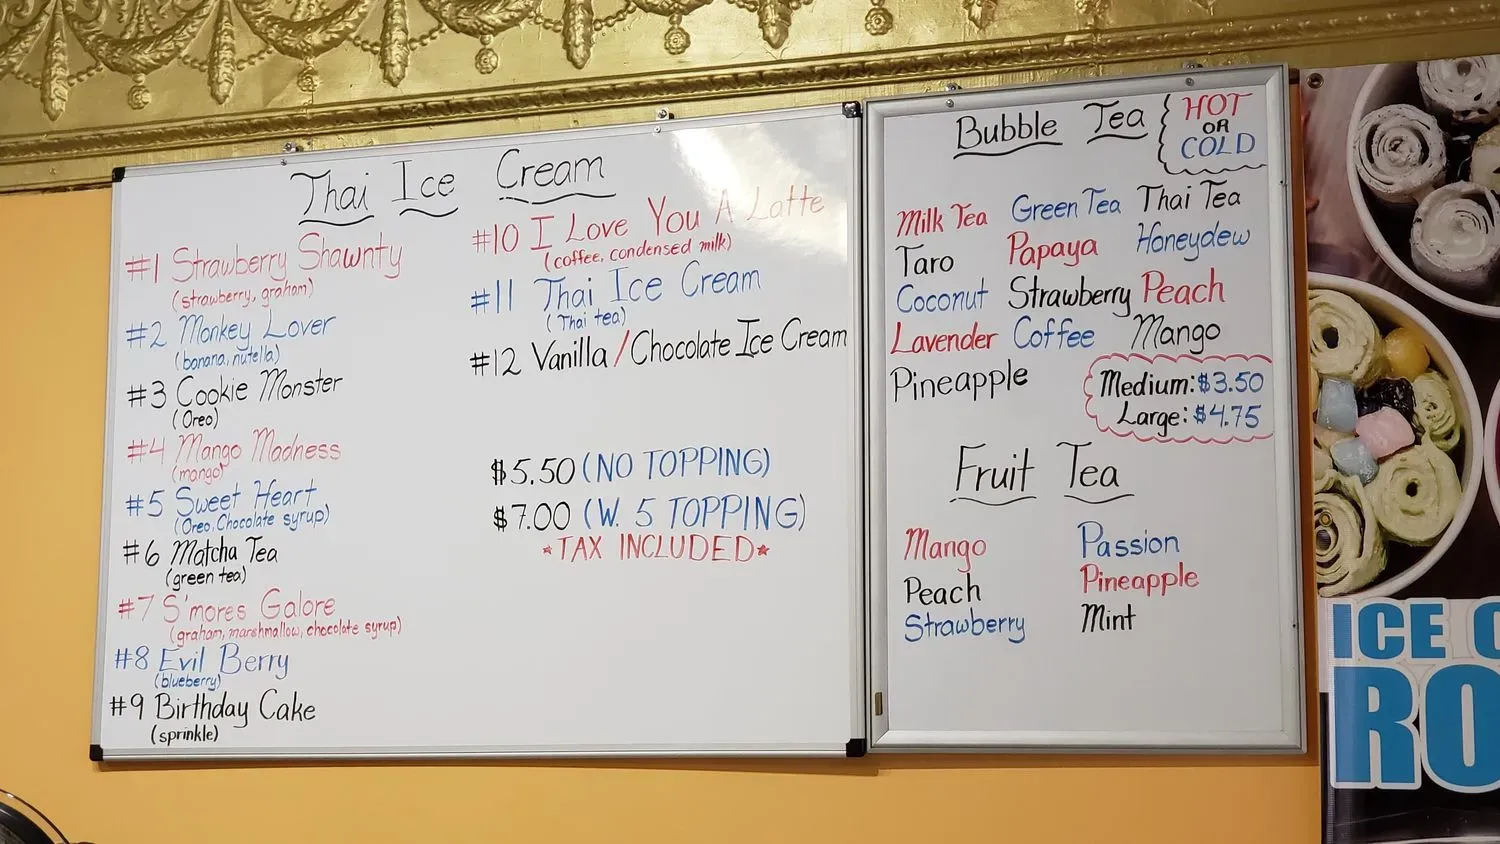 Thai Ice Cream
#1 Strawberry Shawnty
(strawberry, graham)
#2 Monkey Lover
(banana, nutella)
#3 Cookie Monster
(Oreo)
#4 Mango Madness
(mango)
#5 Sweet Heart
(Oreo, Chocolate syrup)
#6 Matcha Tea
(green tea)
#7 S'mores Galore
(graham, marshmallow, chocolate syrup)
#8 Evil Berry
(blueberry)
#9 Birthday Cake
(sprinkle)
#10 I Love You A Latte
(coffee, condensed milk)
#11 Thai Ice Cream
(Thai tea)
#12 Vanilla/Chocolate Ice Cream
$5.50 (NO TOPPING)
$7.00 (W. 5 TOPPING)
*TAX INCLUDED*
Bubble Tea
HOT
OR
COLD
Milk Tea Green Tea Thai Tea
Taro Papaya Honeydew
Coconut Strawberry Peach
Lavender Coffee Mango
Pineapple
Medium: $3.50
Large: $4.75
Fruit Tea
Mango Passion
Peach Pineapple
Strawberry Mint
ICE
RO